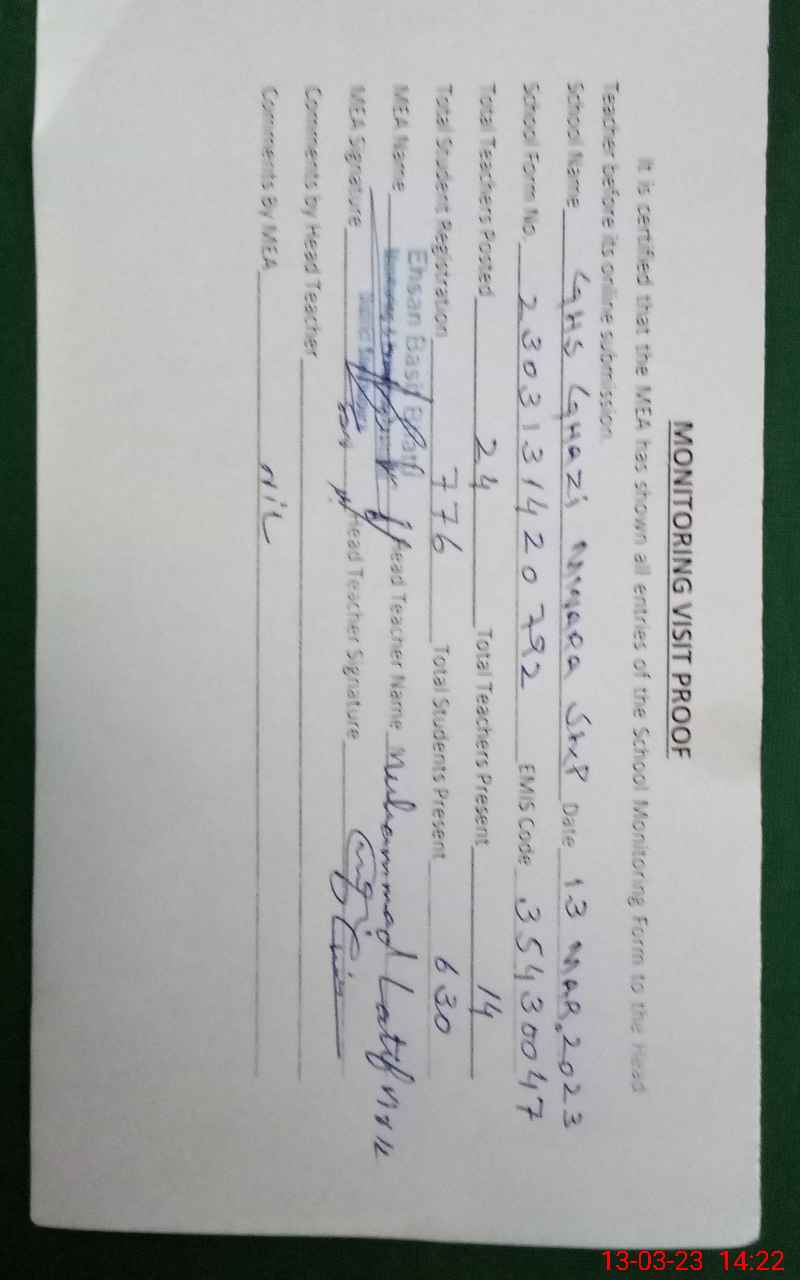 MONITORING VISIT PROOF
It is certified that the MEA has shown all entries of the School Monitoring Form to the Head
Teacher before its online submission.
School Name GHS GHAZI MINARA SKP Date 13 MAR. 2023
School Form No. 230313142 0792 EMIS Code 35430047
Total Teachers Posted 24 Total Teachers Present 14
Total Student Registration 776 Total Students Present 630
Ehsan Basit Bhatti
MEA Name Head Teacher Name Muhammad Latif
MEA Signature Head Teacher Signature
Comments by Head Teacher
Comments By MEA NiL
13-03-23 14:22